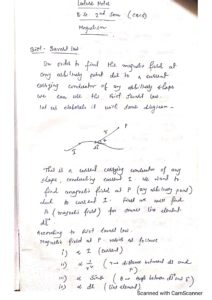 Lecture Notes
B.Sc 2nd Sem (CBCS)
Magnetism
Biot - Savart law
In order to find the magnetic field at
any arbitrary point due to a current
carrying conductor of any arbitrary shape
we can use the Biot Savart law.
Let us elaborate it with some diagram -
P
r
θ
dl
This is a current carrying conductor of any
shape, conducting current I. We want to
find magnetic field at P (any arbitrary point)
due to current I. First we will find
(magnetic field) for some line element
dl
According to Biot Savart law.
Magnetic field at P varies as follows
i) ∝ I (current)
ii) ∝ 1/r² (r = distance between dl and P)
iii) ∝ sinθ (θ = angle between dl and r)
iv) ∝ dl (line element)
Scanned with CamScanner